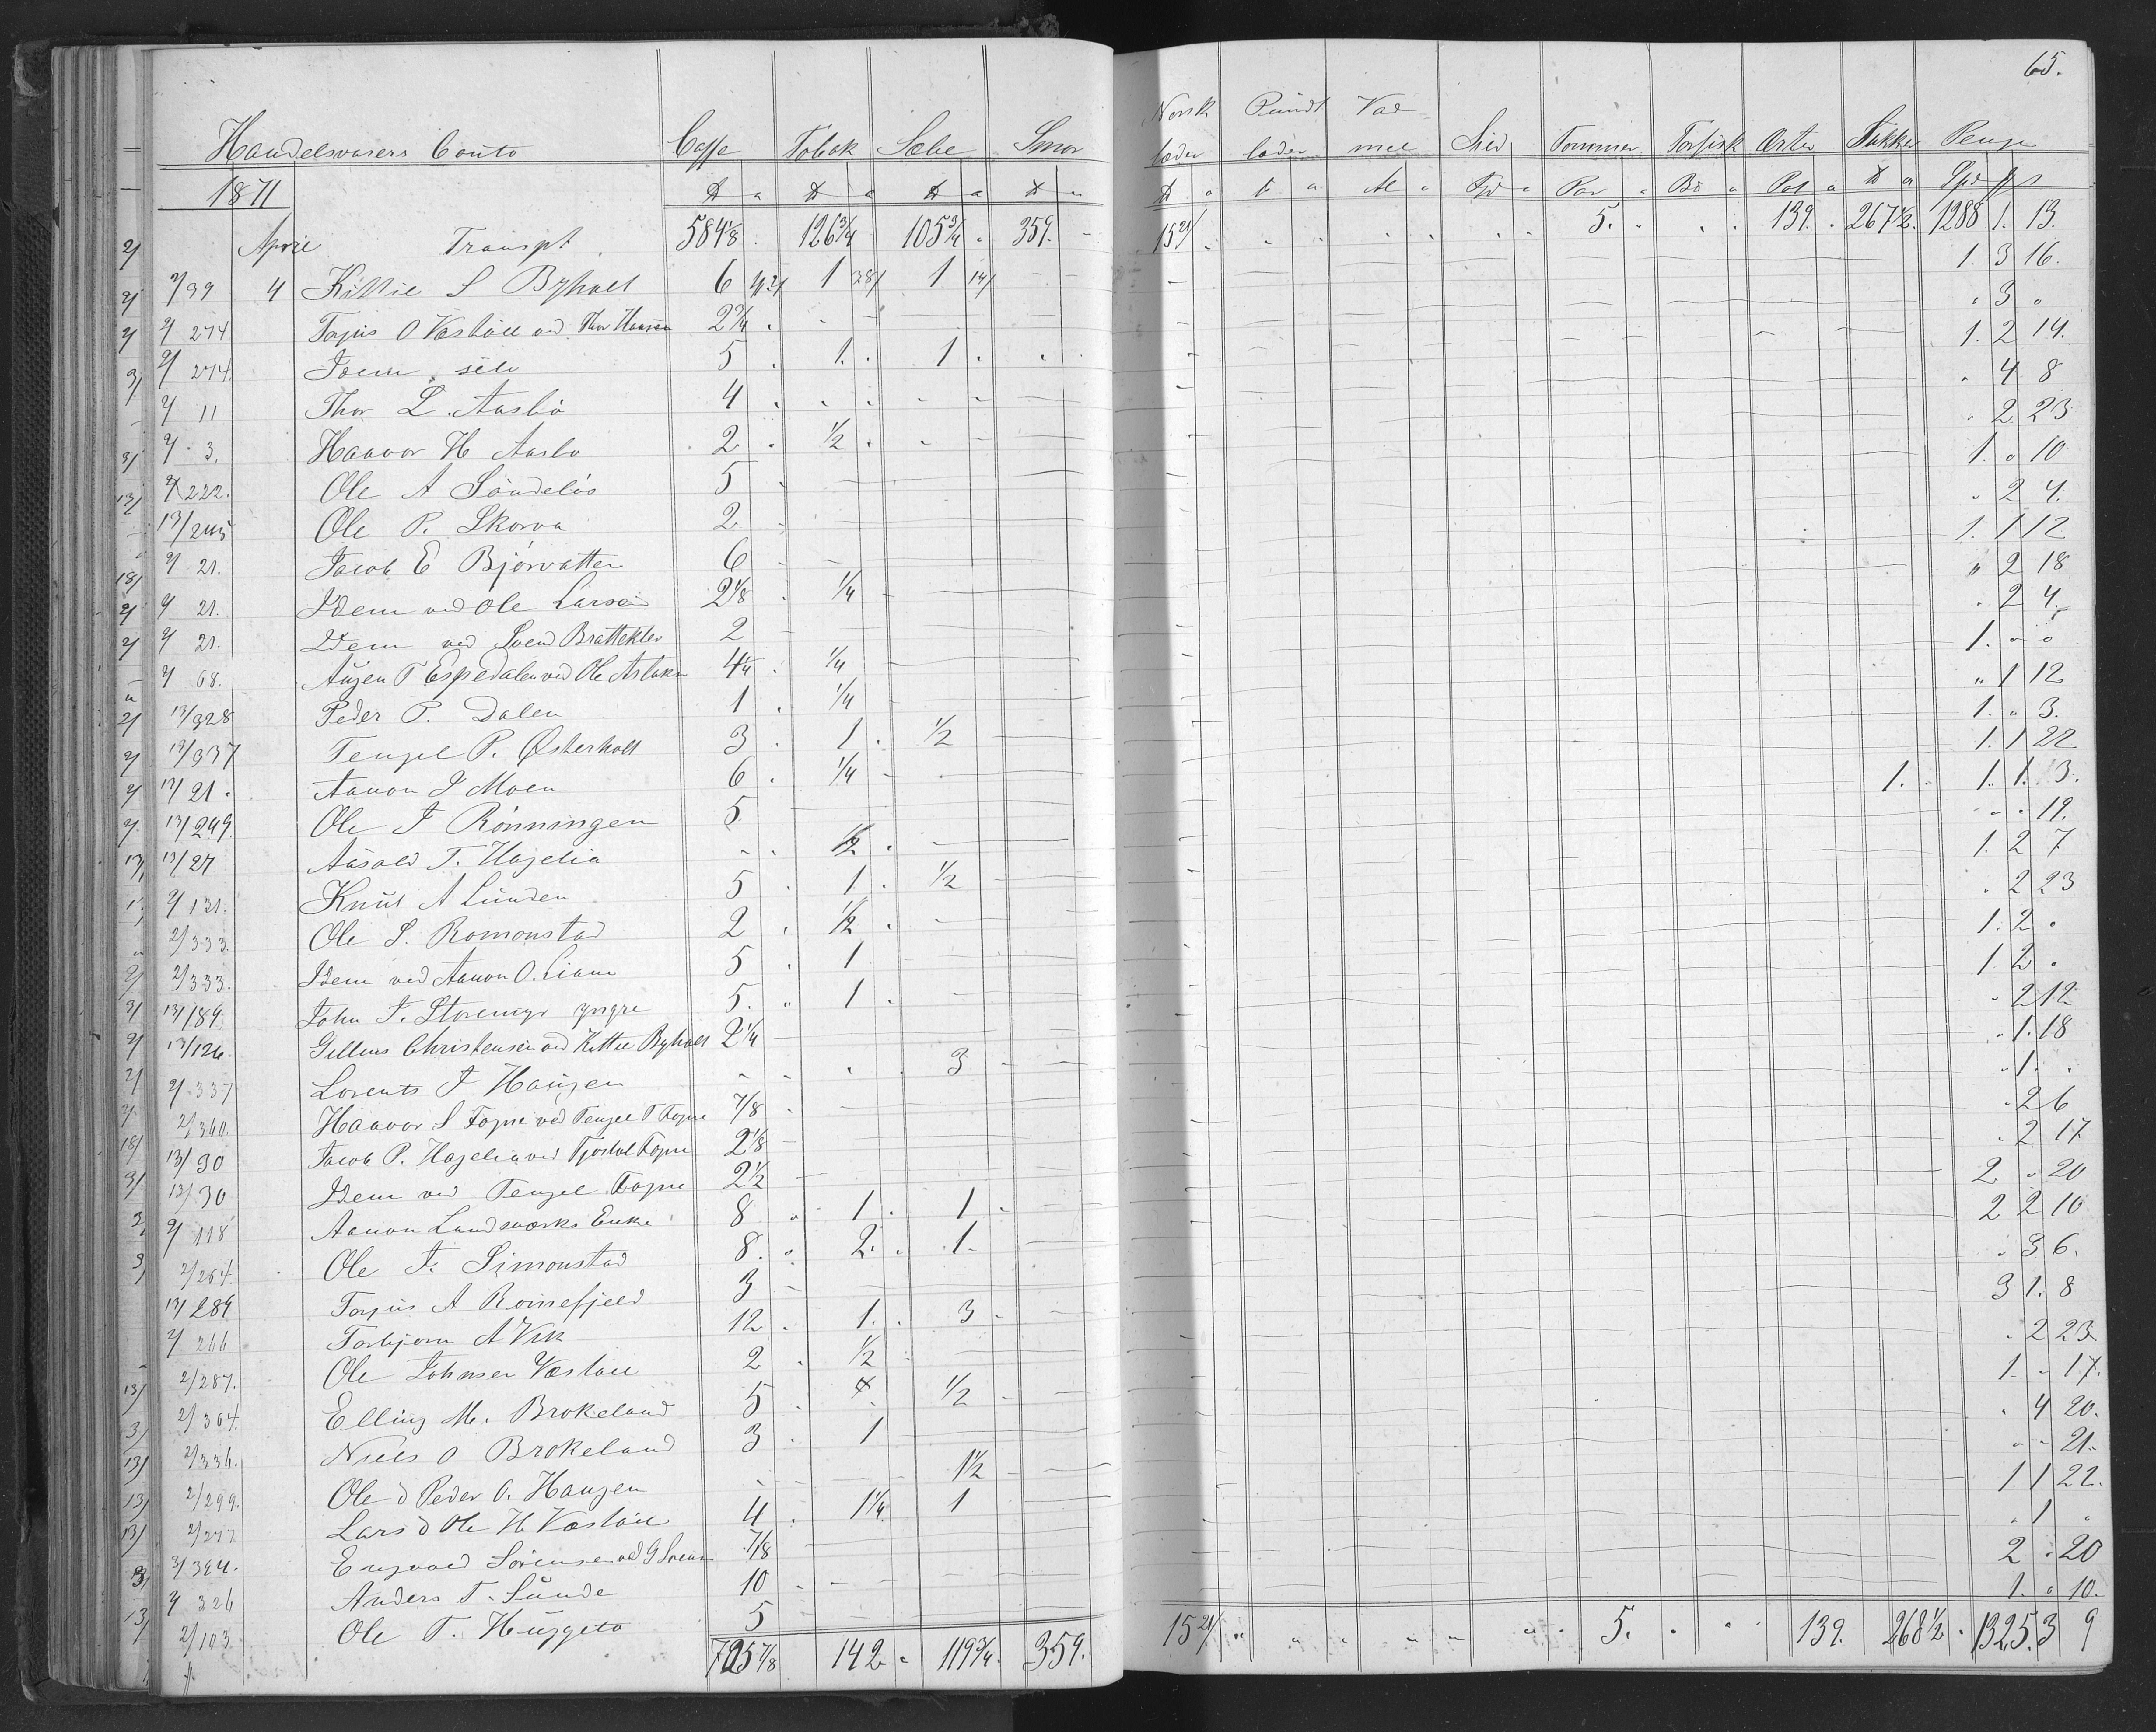 65.
Handelsvarers Conto Caffe Tobak Sæbe Smør Norsk læder Pundt læder Vad mel Sild Tømmer Torfisk Erter Sukker Penge
1871 ℔ a ℔ a ℔ a ℔ a ℔ a ℔ a Al a Tpd a Par a Bd a Pot a ℔ a Spd
April Transpt 584 1/8 126 3/4 105 3/4 359. 15 21/ 5. 139. 267 1/2 1288 1. 13.
2/39 4 Kittil S Byholt 6 42/ 1 38/ 1 14/ 1. 3 16.
2/274 Torjus O Væstøll ved Thor Hansen 2 3/4 3
2/274. Idem selv 5 1. 1 1. 2 14.
2/11 Thor L. Aasbø 4 4 8
2/3. Haavor H Aasbø 2 1/2 2 23
2/222. Ole A Søndeløs 5 1. 10
13/245 Ole P. Skorva 2 2 4.
2/21. Jacob E Bjorvatten 6 1. 1 12
2/21. Idem ved Ole Larsen 2 1/8 1/4 2 18
2/21. Idem ved Svend Bratteklev 2 2 4.
2/68. Augen T Espedalen ved Ole Aslaks 4 1/4 1/4 1.
13/328 Peder P. Dalen 1 1/4 1 12
13/337 Tengel P. Østerholt 3 1 1/2 1. 3.
13/21. Aanon S Moen 6 1/4 1. 1 22
13/249. Ole J Rønningen 5 1. 1. 1. 3.
13/27 Aasold T. Hagelia 1/2 19.
2/131. Knut A Lunden 5 1 1/2 1. 2 7
2/333. Ole S. Romonstad 2 1/2 2 23
2/333. Idem ved Aanon O. Liane 5 1 1. 2
13/189. John J. Storemyr yngre 5. 1 1 2
13/126. Gellius Christensen ved Kittel Byholt 2 1/4 2 12
2/337 Lorents J Haugen 3 1. 18
2/360. Haavor S Fogne ved Tengel T Fogne 7/8 1.
13/30 Jacob P. Hagelia ved Tjostol Fogne 2 1/8 2 6
13/30 Idem ved Tengel Fogne 2 1/2 2 17
2/118 Aanon Landsværks Enke 8 1 1 2 20
2/264. Ole J. Simonstad 8. 2. 1. 2 2 10
13/289 Torjus A Roinefjeld 3 3 6.
2/266 Torbjørn A Vik 12 1. 3 3 1. 8
2/287. Ole Johnsen Væstøll 2 1/2 2 23
2/304. Elling M. Brokeland 5 1/2 1 17.
2/336. Niels O Brokeland 3 1 4 20.
2/299. Ole d Peder O. Haugen 1 1/2 21.
2/277 Lars d Ole H. Væstøll 4 1 1/4 1 1 1 22.
3/324. Engvald Sørensen ved G Sørens 7/8 1
2/326 Anders T. Sunde 10 2 20
2/103 Ole T. Huggeto 5 1. 10.
705 7/8 142 119 3/4. 359. 15 21/ 5. 139. 268 1/2 1325. 3 9